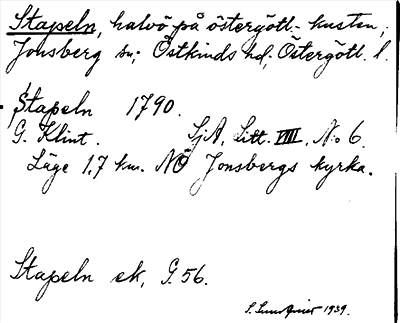 Stapeln, halvö på östergötl.-kusten,
Jonsberg sn; Östkinds hd, Östergötl. l.
Stapeln 1790.
G. Klint. SjA, Litt. VIII. No 6.
Läge 1,7 km. NÖ Jonsbergs kyrka.
Stapeln ek, G. 56.
S. 1939.